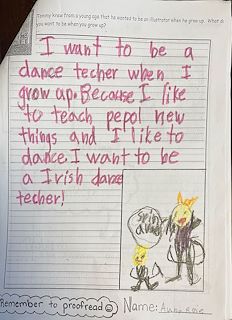 Tommy knew from a young age that he wanted to be an illustrator when he grew up. What do
you want to be when you grow up?
I want to be a
dance techer when I
grow up. Because I like
to teach pepol new
things and I like to
dance. I want to be
a Irish dance
techer!
spin
and
Remember to proofread
Name: